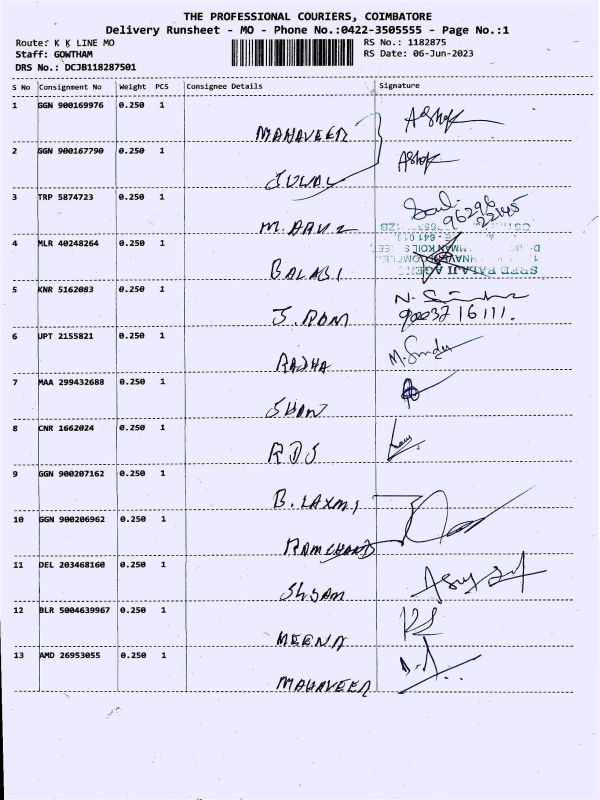 THE PROFESSIONAL COURIERS, COIMBATORE
Delivery Runsheet - MO - Phone No.:0422-3505555 - Page No.:1
Route: K K LINE MO
RS No.: 1182875
Staff: GOWTHAM
RS Date: 06-Jun-2023
DRS No.: DCJB118287501
S No Consignment No Weight PCS Consignee Details Signature
1 GGN 900169976 0.250 1
MAHAVEER Ashok
2 GGN 900167790 0.250 1
Ashok
3 TRP 5874723 0.250 1
96296
22145
4 MLR 40248264 0.250 1
BALAGI
SREE BALAJI AGEN
5 KNR 5162083 0.250 1
J. ROM
9003716111.
6 UPT 2155821 0.250 1
RADHA
7 MAA 299432688 0.250 1
8 CNR 1662024 0.250 1
RDS
9 GGN 900207162 0.250 1
B. LAXMI
10 GGN 900206962 0.250 1
RAMCHAND
11 DEL 203468160 0.250 1
SHYAM
12 BLR 5004639967 0.250 1
MEENA
13 AMD 26953055 0.250 1
MAHAVEER